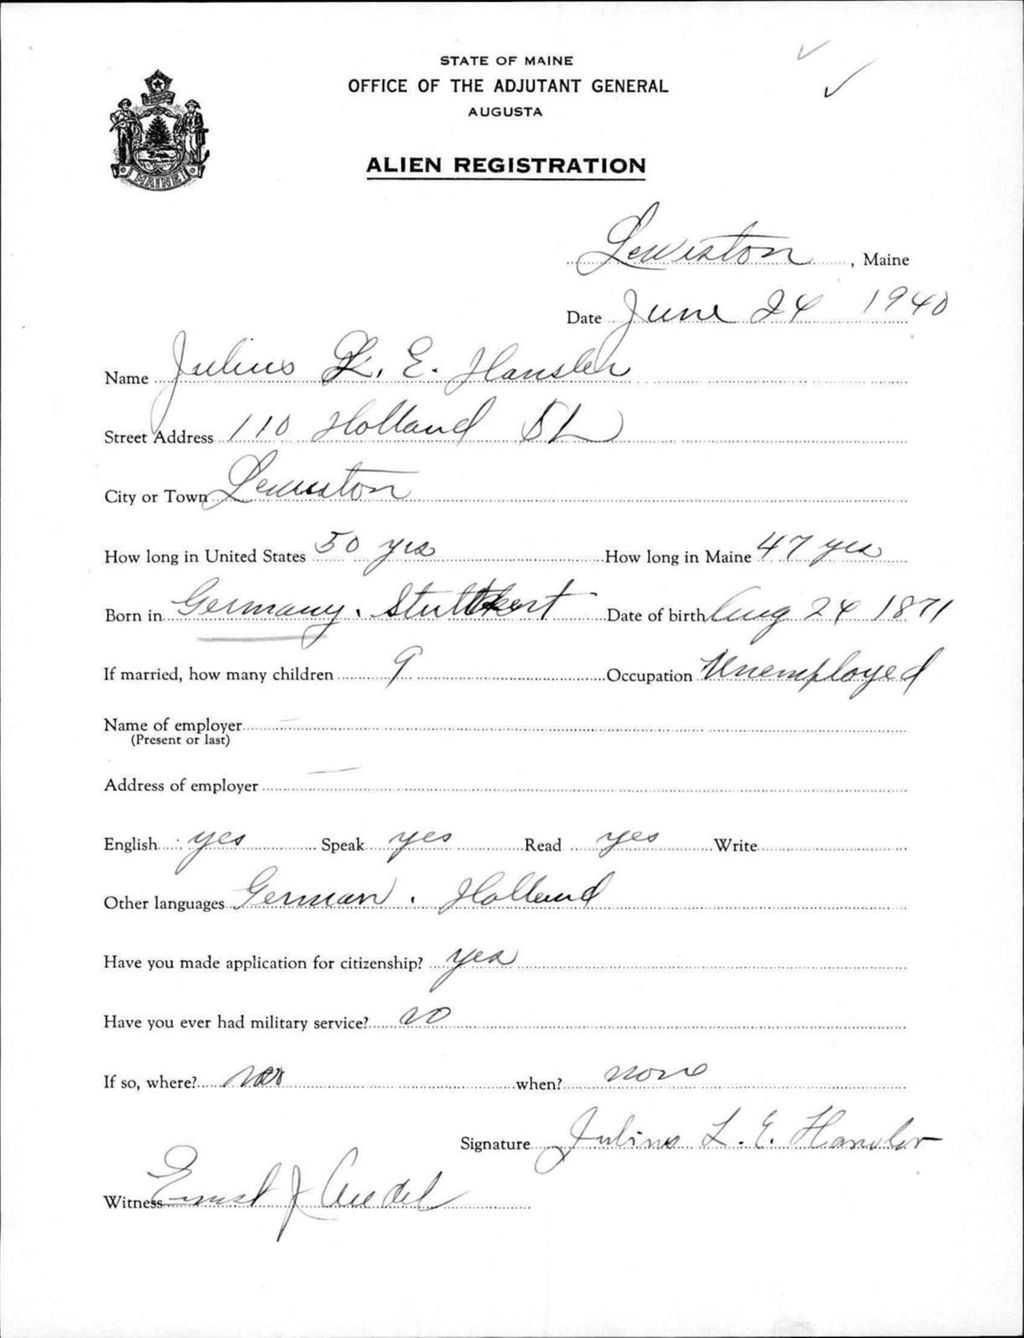 STATE OF MAINE
OFFICE OF THE ADJUTANT GENERAL
AUGUSTA
ALIEN REGISTRATION
MAINE
Lewiston, Maine
Date June 24 1940
Name Julius L. E. Hansler
Street Address 110 Holland St
City or Town Lewiston
How long in United States 50 yrs How long in Maine 47 yrs
Born in Germany. Date of birth Aug 24 1871
If married, how many children 9 Occupation Unemployed
Name of employer
(Present or last)
Address of employer
English yes Speak yes Read yes Write
Other languages German. Holland
Have you made application for citizenship? yes
Have you ever had military service? no
If so, where? when? none
Signature Julius L. E. Hansler
Witness Ernest J.